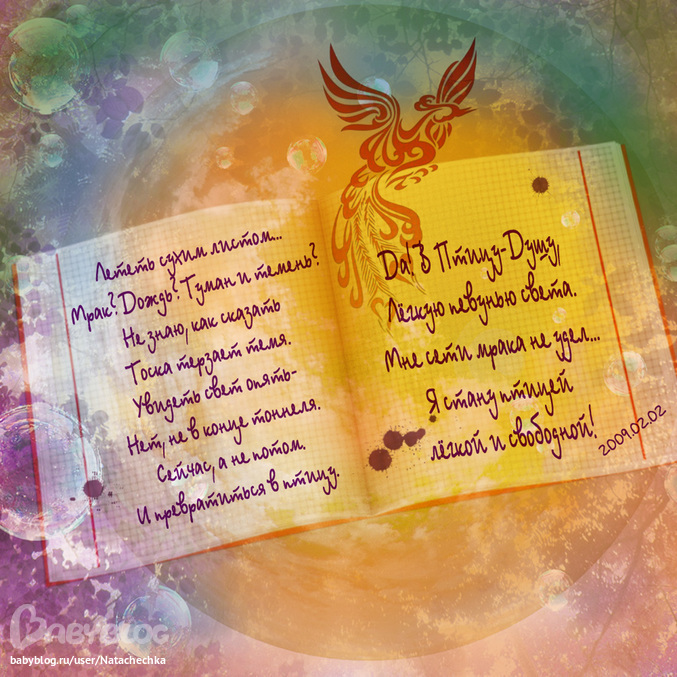 Лететь сухим листом...
Мрак? Дождь? Туман и темень?
Не знаю, как сказать
Тоска терзает темя.
Увидеть свет опять-
Нет, не в конце тоннеля.
Сейчас, а не потом.
И превратиться в птицу.
Да! В Птицу-Душу,
Лёгкую певунью света.
Мне сети мрака не удел...
Я стану птицей
лёгкой и свободной!
2009.02.02
BABYBLOG
babyblog.ru/user/Natachechka